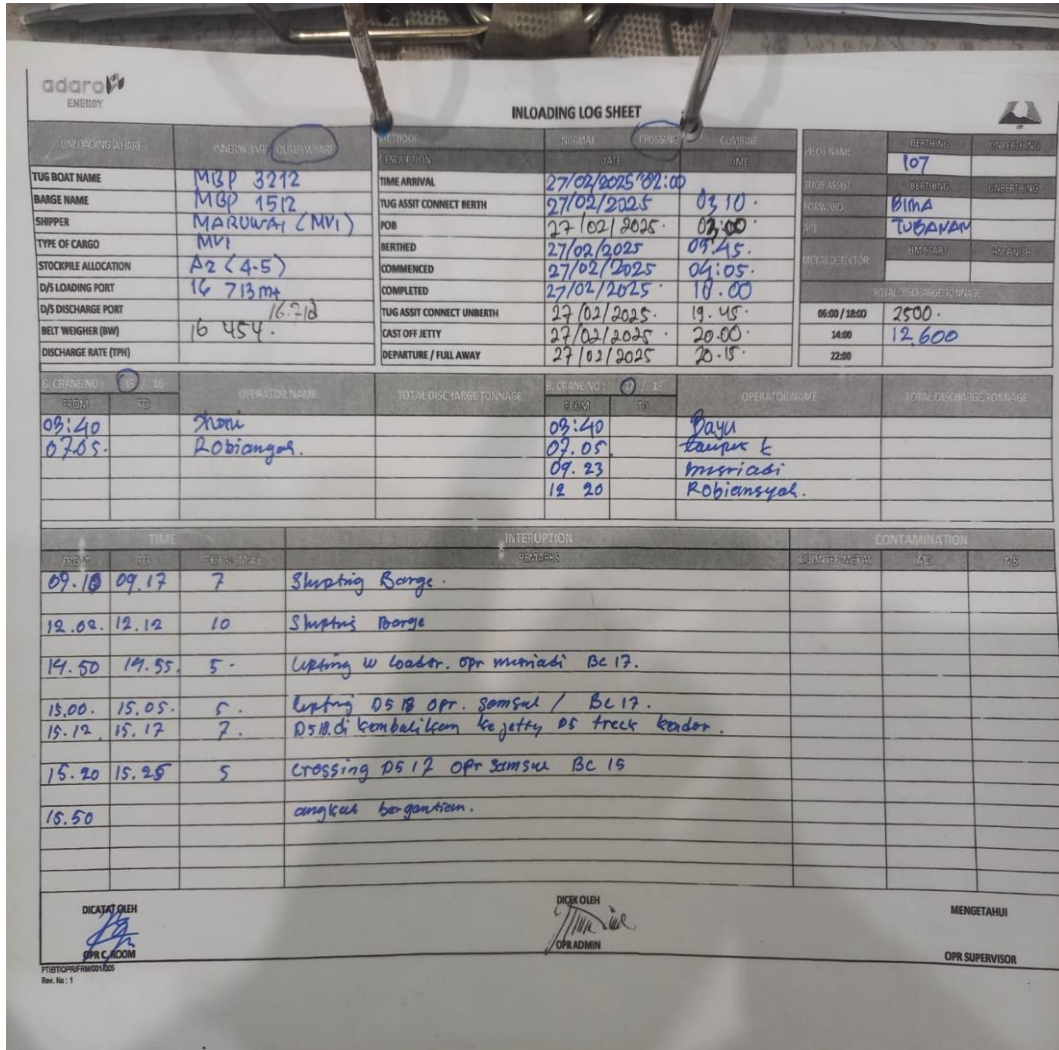 adaro
ENERGY
INLOADING LOG SHEET
UNLOADING WHARF INNER WHARF OUTER WHARF
TUG BOAT NAME MBP 3212
BARGE NAME MBP 1512
SHIPPER MARUWAI (MVI)
TYPE OF CARGO MVI
STOCKPILE ALLOCATION A2 (4-5)
D/S LOADING PORT 16 713 mt
D/S DISCHARGE PORT
BELT WEIGHER (BW) 16 454.
DISCHARGE RATE (TPH)
METHODE NORMAL CROSSING COMBINE
DESCRIPTION DATE TIME
TIME ARRIVAL 27/02/2025 02:00
TUG ASSIT CONNECT BERTH 27/02/2025 03 10.
POB 27/02/2025. 03:00
BERTHED 27/02/2025 03.45.
COMMENCED 27/02/2025 04:05.
COMPLETED 27/02/2025 18.00
TUG ASSIT CONNECT UNBERTH 27/02/2025. 19.45.
CAST OFF JETTY 27/02/2025 20.00.
DEPARTURE / FULL AWAY 27/02/2025 20.15.
PILOT NAME BERTHING UNBERTHING
107
TUGS ASSIST BERTHING UNBERTHING
FORWARD BIMA
AFT TUBANAN
METAL DETECTOR HM START HM FINISH
TOTAL DISCHARGE TONNAGE
06:00 / 18:00 2500.
14:00 12,600
22:00
B. CRANE NO : 15 / 16 OPERATOR NAME TOTAL DISCHARGE TONNAGE
FROM TO
03:40
07.05.
B. CRANE NO : 17 / 18 OPERATOR NAME TOTAL DISCHARGE TONNAGE
FROM TO
03:40 Bayu
07.05
09.23 musriadi
12 20 Robiansyah.
TIME INTERUPTION CONTAMINATION
FROM TO TOTAL MIN REMARKS COUNTER METAL
09.10 09.17 7 Shipting Barge.
12.02. 12.12 10 Shipting Barge
14.50 14.55. 5. Lipting w loader. opr musriadi BC 17.
15.00. 15.05. 5. Lipting D5 18 opr. Samsul / BC 17.
15.12. 15.17 7. D5 18. di kembalikan ke jetty D5 track kendor.
15.20 15.25 5 crossing D5 17 opr Samsul BC 15
15.50 angkut bergantian.
DICATAT OLEH
OPR C, ROOM
DICEK OLEH
OPR ADMIN
MENGETAHUI
OPR SUPERVISOR
PTIBT/OPR/FRM/001/005
Rev. No : 1